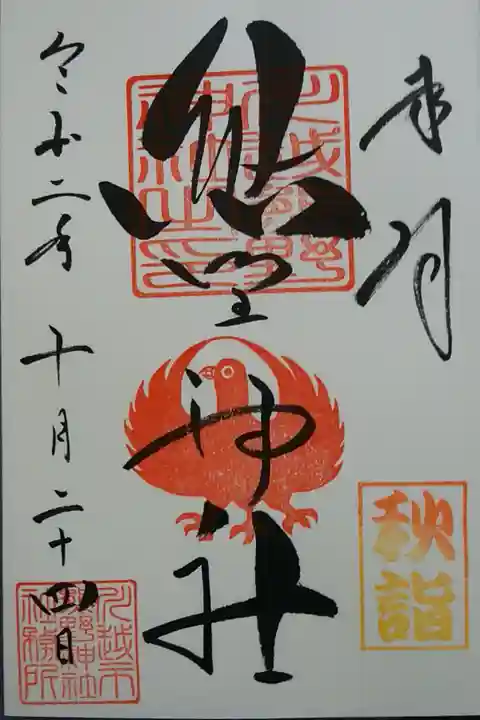 奉拝
熊野神社
川越熊野神社之印
秋詣
令和二年 十月 二十四日
川越市熊野神社社務所